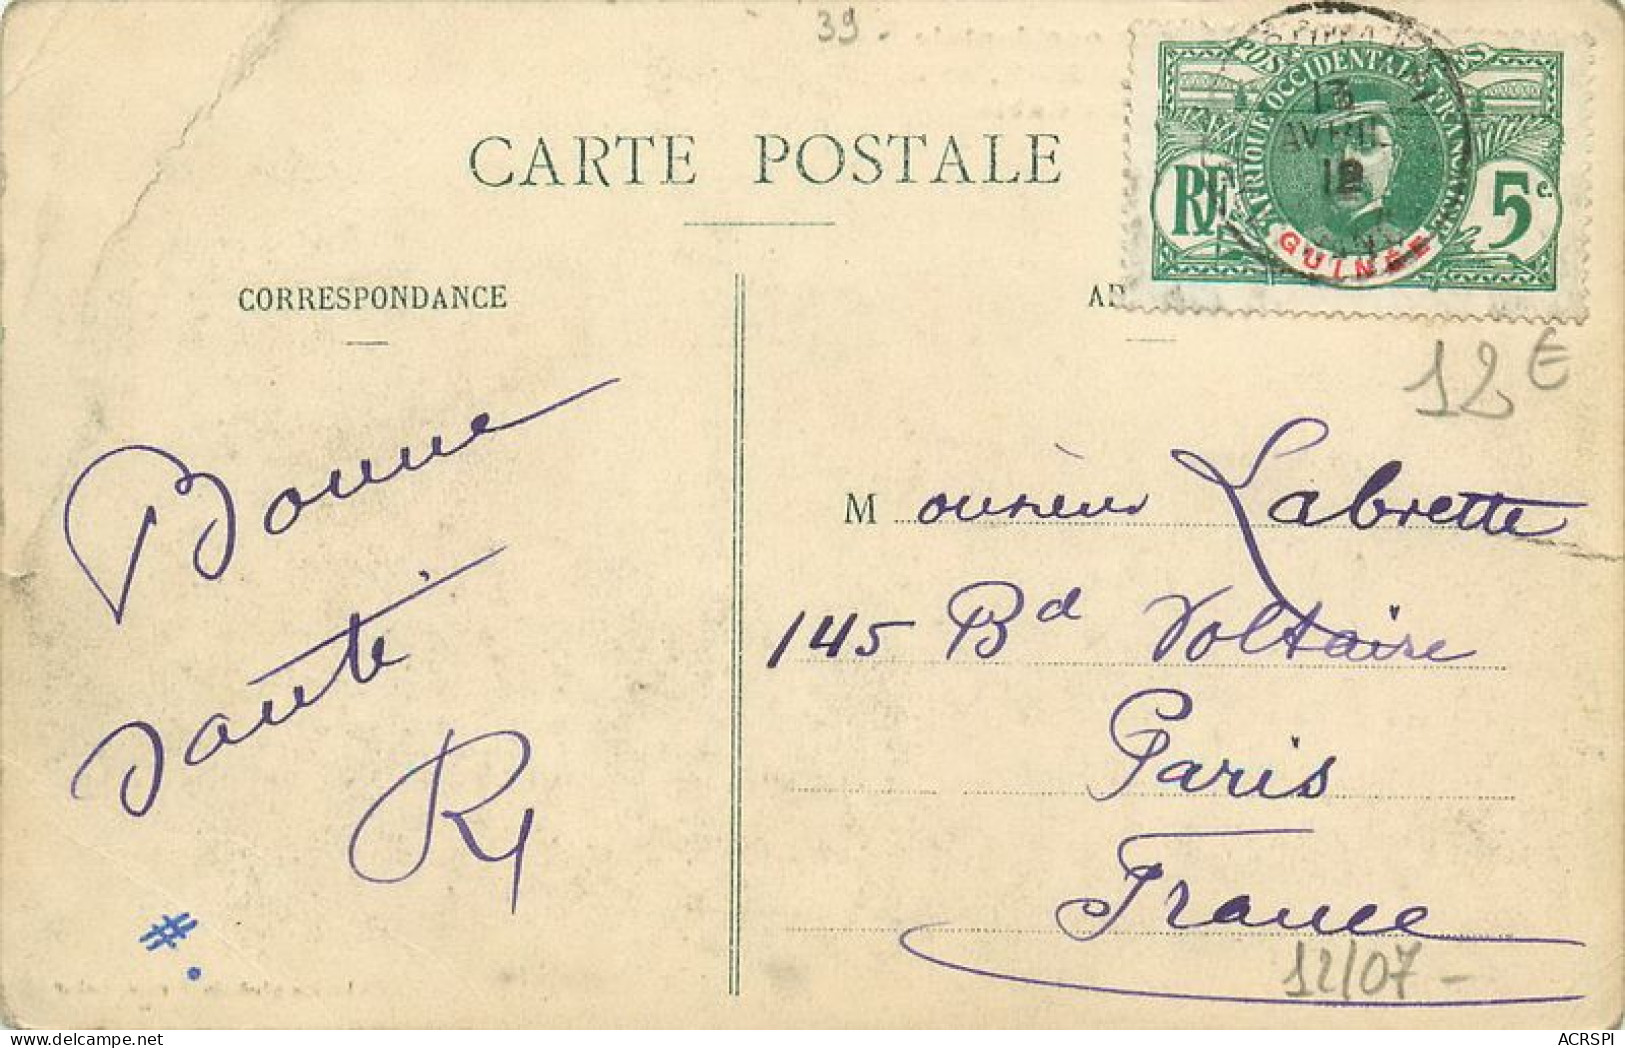 39.
CARTE POSTALE
POSTES
AFRIQUE OCCIDENTALE FRANÇAISE
13
AVRIL
12
RF
5 c.
GUINÉE
CORRESPONDANCE
AD
12 €
Bonne
santé
M onsieur Labrette
145 Bd Voltaire
Paris
France
#.
12/07-
ACRSPI